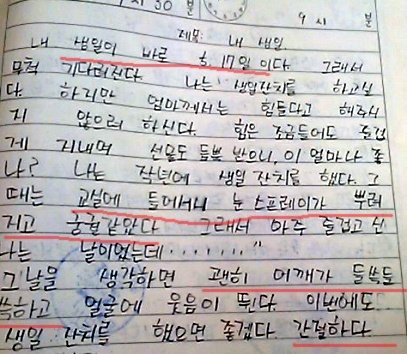 시 30 분
9 시 분
제목: 내 생일
내 생일이 바로 5. 17일 이다. 그래서
무척 기다려진다. 나는 생일잔치를 하고싶
다. 하지만 엄마께서는 힘들다고 해주시
지 않으려 하신다. 힘은 조금들어도 즐겁
게 지내며 선물도 듬뿍 받으니, 이 얼마나 좋
나? 나는 작년에 생일 잔치를 했다. 그
때는 교실에 들어서니 눈 스프레이가 뿌려
지고 궁궐같았다 그래서 아주 즐겁고 신
나는 날이었는데 ........"
그 날을 생각하면 괜히 어깨가 들쑥도
쑥하고 얼굴에 웃음이 띈다. 이번에도
생일 잔치를 했으면 좋겠다. 간절하다.